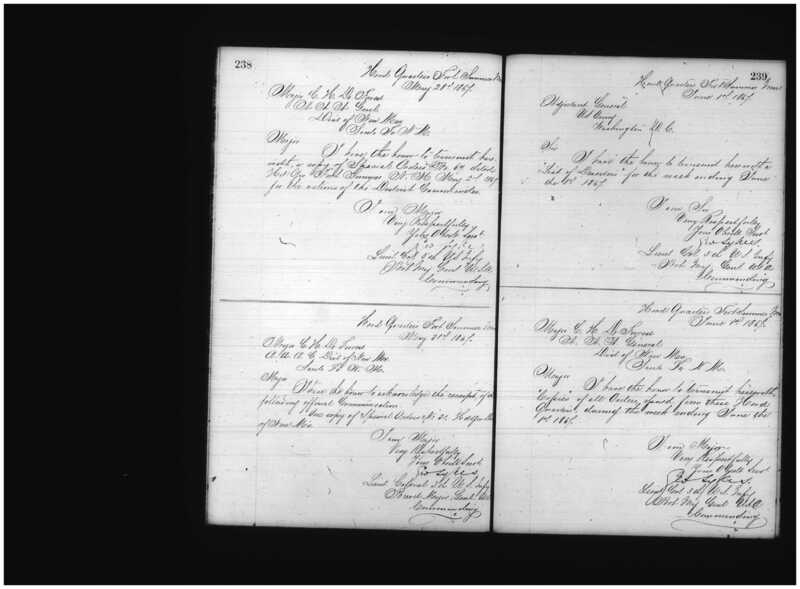 238
Head Quarters Fort Sumner N.M.
May 28th 1867.
Major C. H. De Forrest
A. A. A. Genl.
Dist of New Mex
Santa Fe N. M.
Major
I have the honor to transmit here
with a copy of Special Orders No. 60 dated
Hd Qrs Fort Sumner N. M. May 1867
for the action of the District Commander.
I am Major
Very Respectfully
Your Obedt Servt
Geo Sykes
Lieut Col 5th U. S. Infy
Bvt Maj Genl U.S.A.
Commanding
Head Quarters Fort Sumner N.M.
May 1867.
Major C. H. De Forrest
A. A. A. G. Dist of New Mex
Santa Fe N. M.
Major
I have the honor to acknowledge the receipt of the
following official Communication.
One copy of Special Orders Hdqrs Dist
of New Mex.
I am Major
Very Respectfully
Your Obedt Servt
Geo Sykes
Lieut Colonel 5th U. S. Infy
Brevet Major Genl U.S.A.
Commanding
239
Head Quarters Fort Sumner N.M.
June 1st 1867.
Adjutant General
U.S. Army
Washington D. C.
Sir
I have the honor to transmit herewith a
"List of Deserters" for the week ending June
the 1st 1867.
I am Sir
Very Respectfully
Your Obedt Servt
Geo Sykes.
Lieut Col 5th U.S. Infy
Bvt Maj Genl U.S.A.
Commanding
Head Quarters Fort Sumner N.M.
June 1st 1867.
Major C. H. De Forrest
A. A. A. General
Dist of New Mex
Santa Fe N. M.
Major
I have the honor to transmit herewith
"Copies" of all Orders issued from these Head
Quarters during the week ending June the
1st 1867.
I am Major
Very Respectfully
Your Obedt Servt
Geo Sykes.
Lieut Col 5th U.S. Infy
Bvt Maj Genl U.S.A.
Commanding